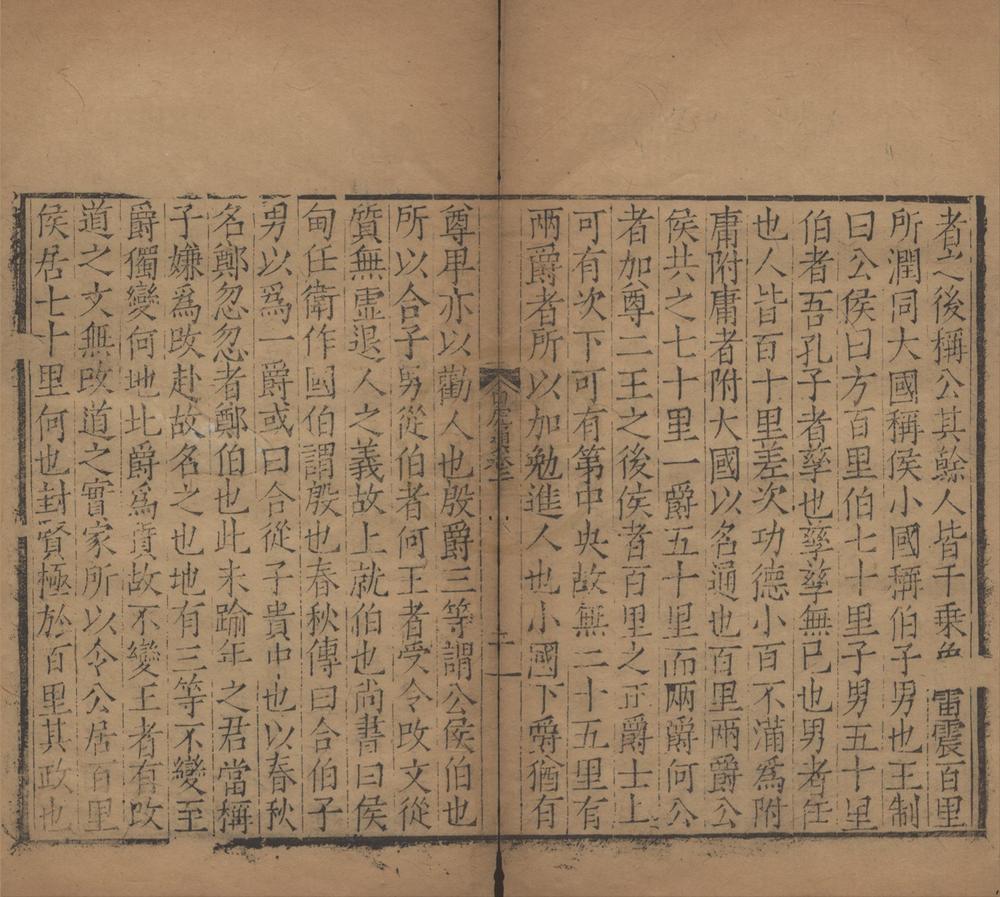 者之後稱公其餘人皆千乗象雷震百里
所潤同大國稱侯小國稱伯子男也王制
曰公侯曰方百里伯七十里子男五十里
伯者吾孔子者孳也孳孳無已也男者任
也人皆百十里差次功德小百不滿爲附
庸附庸者附大國以名通也百里兩爵公
侯共之七十里一爵五十里而兩爵何公
者加尊二王之後侯者百里之正爵士上
可有次下可有第中央故無二十五里有
兩爵者所以加勉進人也小國下爵猶有
尊卑亦以勸人也殷爵三等謂公侯伯也
所以合子男從伯者何王者受令改文從
質無虛退人之義故上就伯也尚書曰侯
甸任衛作國伯謂殷也春秋傳曰合伯子
男以爲一爵或曰合從子貴中也以春秋
名鄭忽忽者鄭伯也此未踰年之君當稱
子嫌爲改赴故名之也地有三等不變至
爵獨變何地比爵爲質故不變王者有改
道之文無改道之實家所以令公居百里
侯居七十里何也封賢極於百里其政也